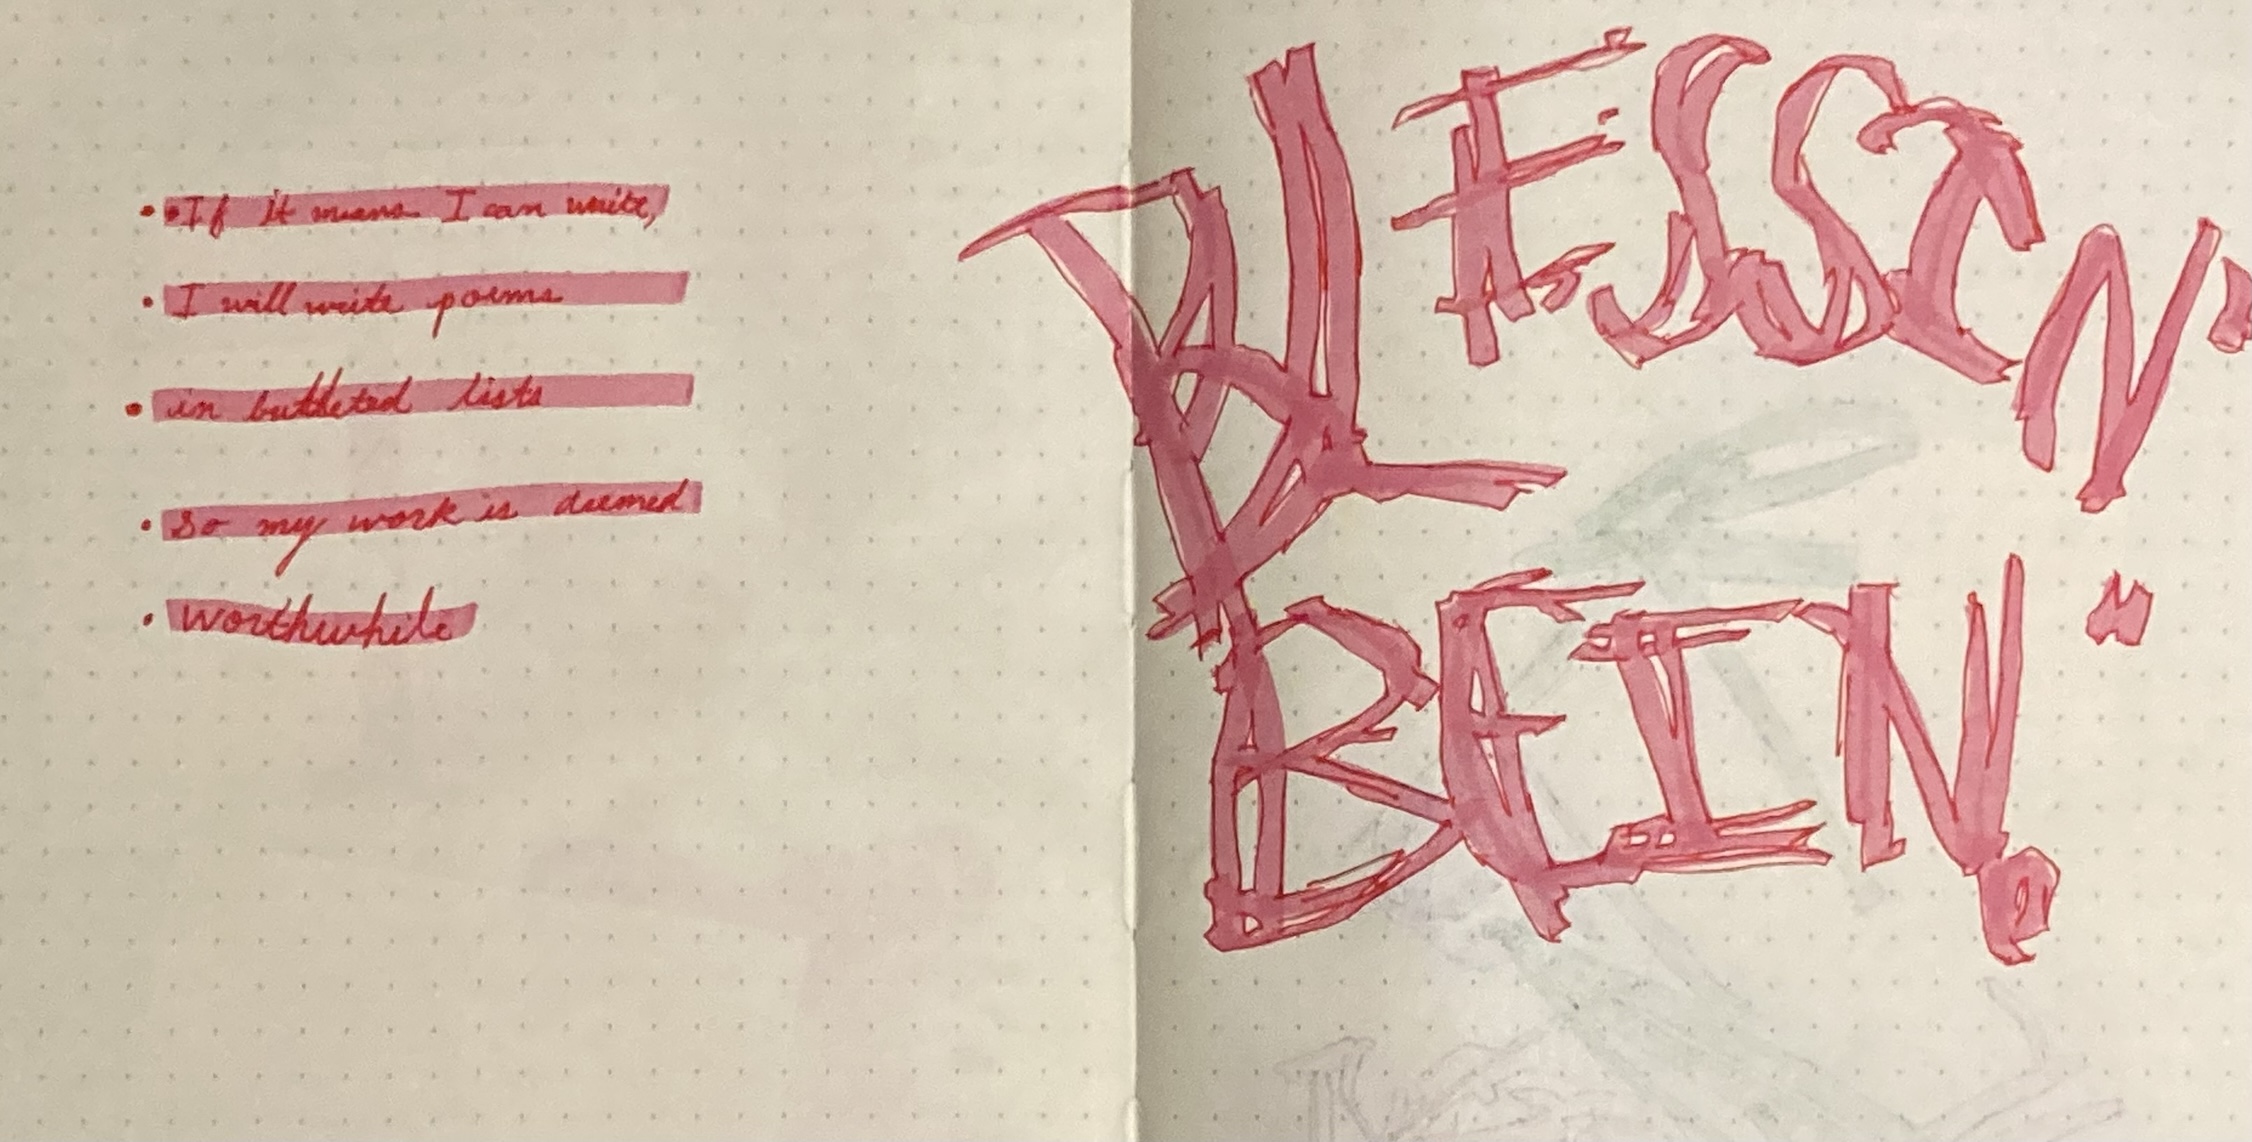 • If it means I can write,
• I will write poems
• in bulleted lists
• so my work is deemed
• worthwhile
BLESSIN'
BEIN"